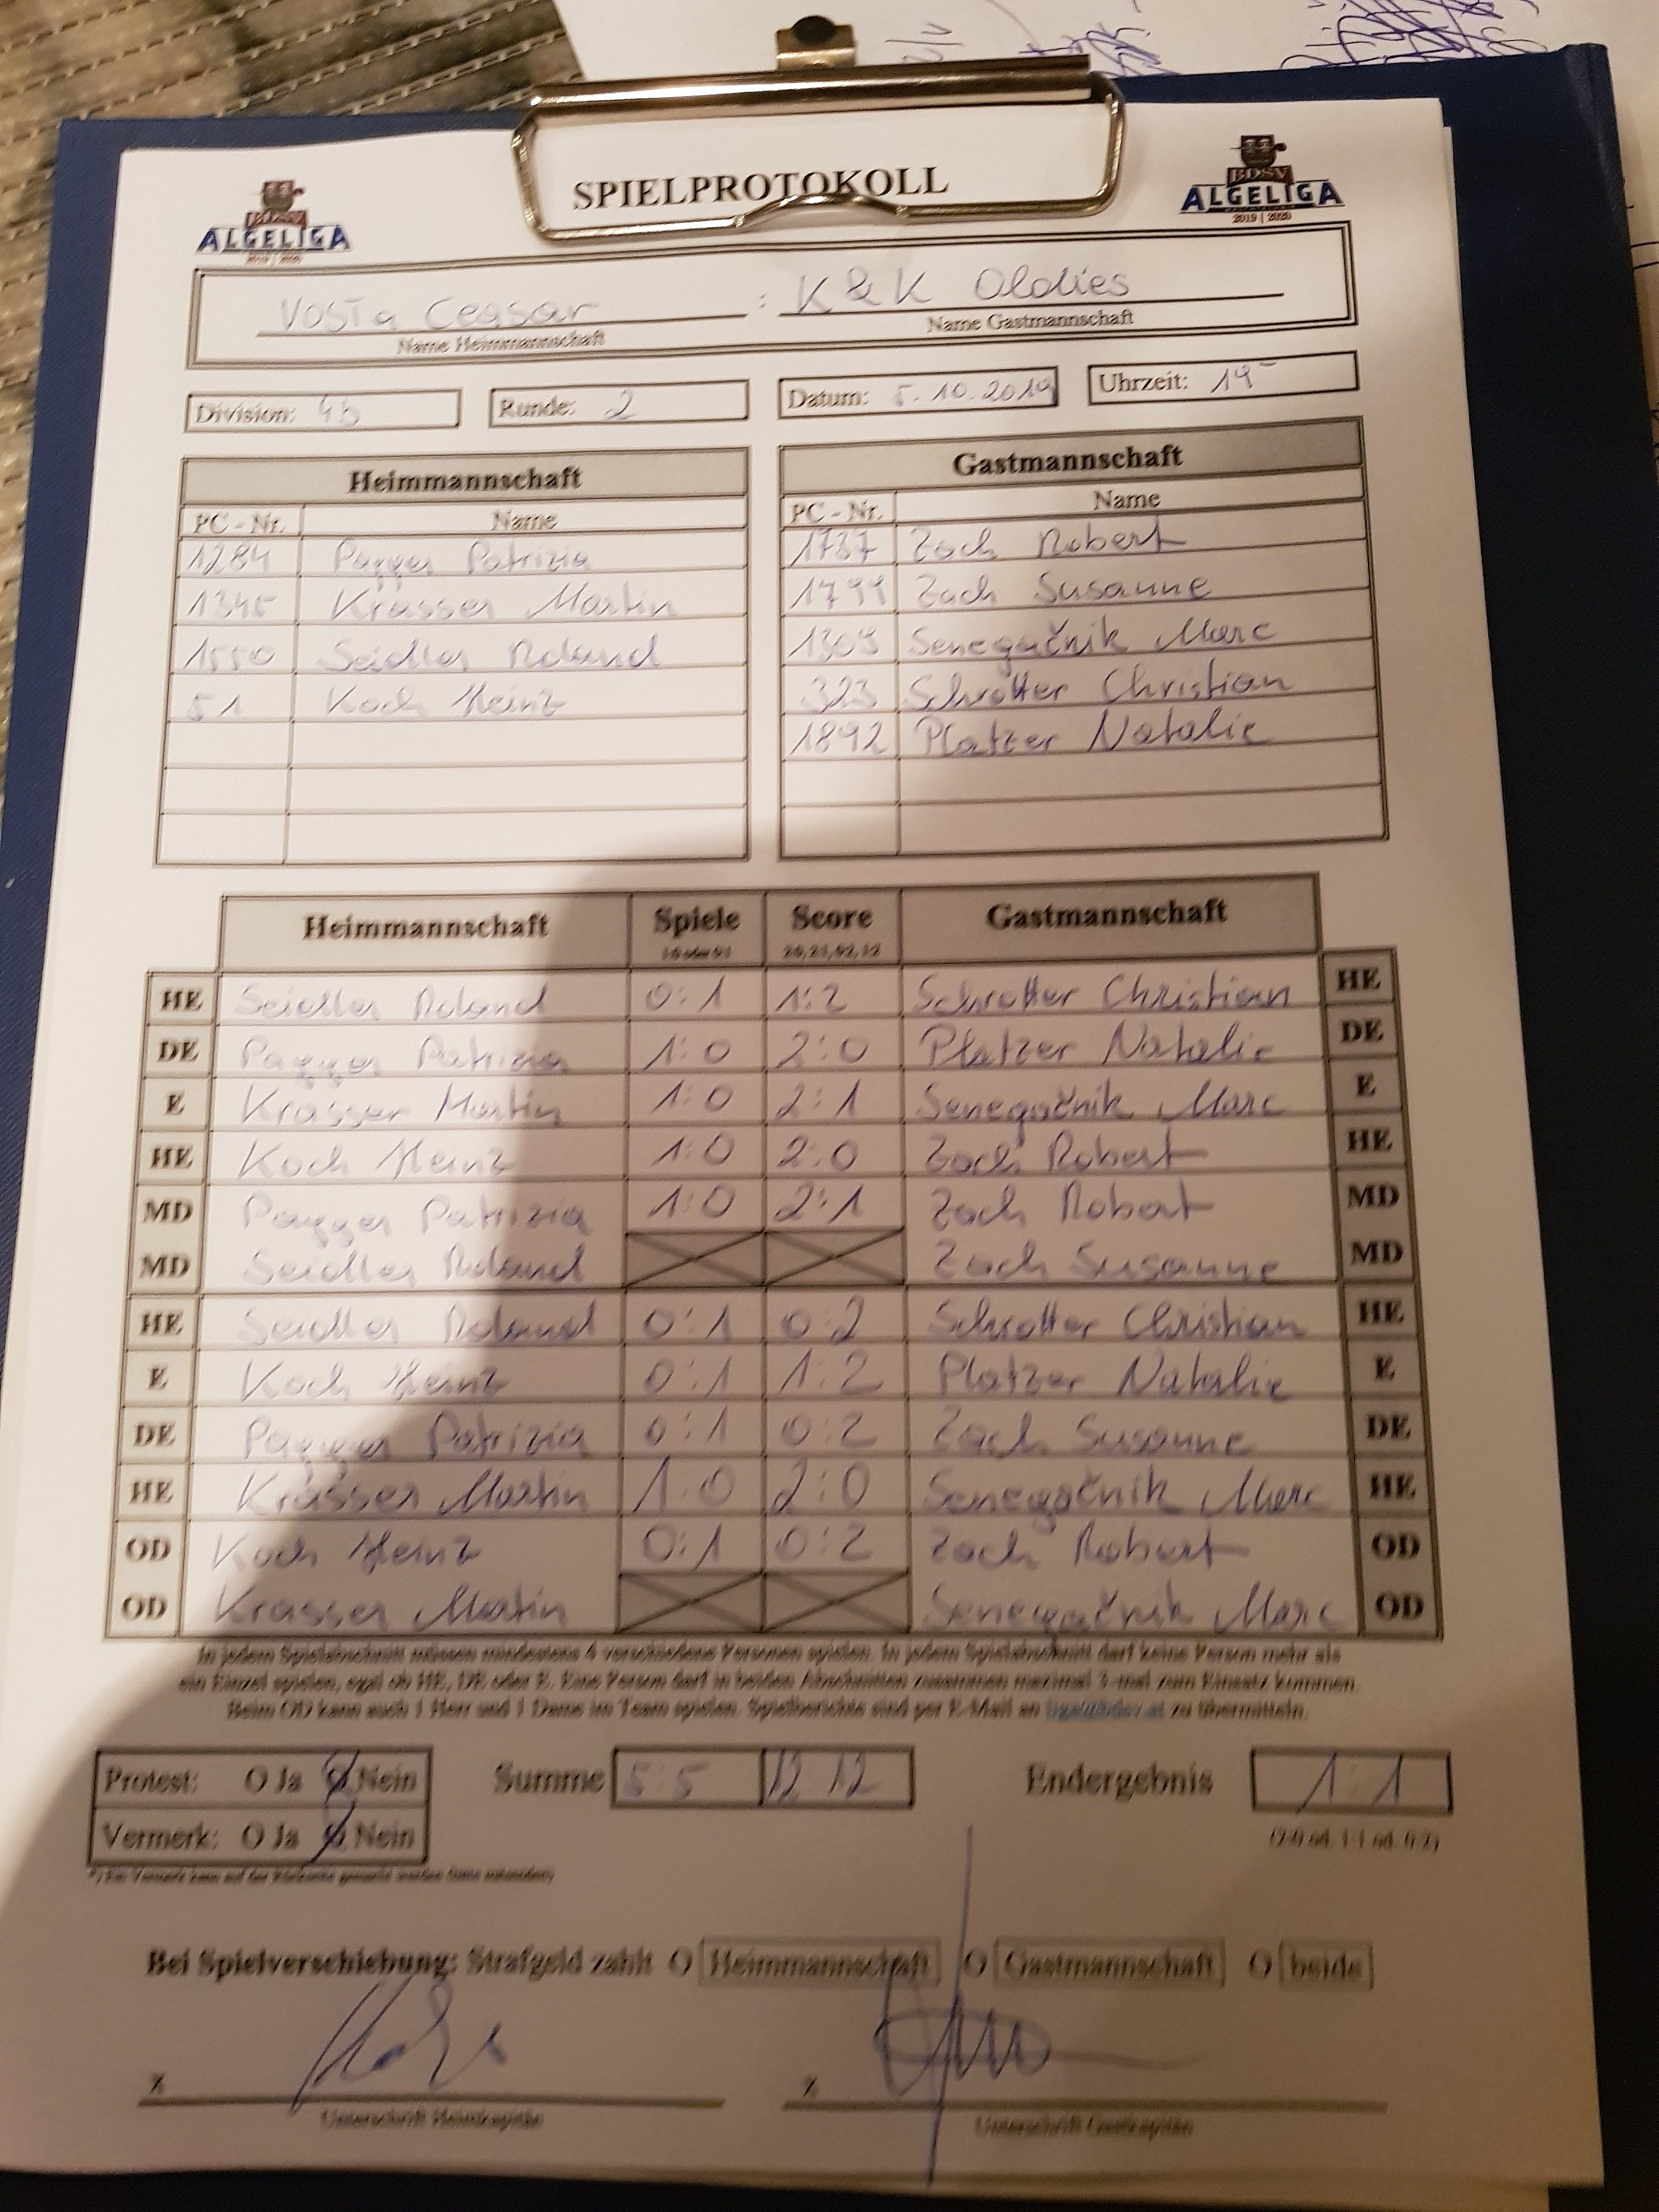 SPIELPROTOKOLL
BDSV
ALGELIGA
2019 | 2020
BDSV
ALGELIGA
2019 | 2020
Vosta Ceasar : K & K Oldies
Name Heimmannschaft Name Gastmannschaft
Division: 4b Runde: 2 Datum: 5.10.2019 Uhrzeit: 19
Heimmannschaft
PC - Nr. Name
1284 Pagger Patrizia
1345 Krasser Martin
1550 Seidler Roland
51 Koch Heinz
Gastmannschaft
PC - Nr. Name
1737 Zach Robert
1799 Zach Susanne
1309 Senegačnik Marc
323 Schrotter Christian
1892 Platzer Natalie
Heimmannschaft Spiele Score Gastmannschaft
10 oder 01 20, 21, 02, 12
HE Seidler Roland 0:1 1:2 Schrotter Christian HE
DE Pagger Patrizia 1:0 2:0 Platzer Natalie DE
E Krasser Martin 1:0 2:1 Senegačnik Marc E
HE Koch Heinz 1:0 2:0 Zach Robert HE
MD Pagger Patrizia 1:0 2:1 Zach Robert MD
MD Seidler Roland Zach Susanne MD
HE Seidler Roland 0:1 0:2 Schrotter Christian HE
E Koch Heinz 0:1 1:2 Platzer Natalie E
DE Pagger Patrizia 0:1 0:2 Zach Susanne DE
HE Krasser Martin 1:0 2:0 Senegačnik Marc HE
OD Koch Heinz 0:1 0:2 Zach Robert OD
OD Krasser Martin Senegačnik Marc OD
In jedem Spielabschnitt müssen mindestens 4 verschiedene Personen spielen. In jedem Spielabschnitt darf keine Person mehr als
ein Einzel spielen, egal ob HE, DE oder E. Eine Person darf in beiden Abschnitten zusammen maximal 3-mal zum Einsatz kommen.
Beim OD kann auch 1 Herr und 1 Dame im Team spielen. Spielberichte sind per E-Mail an zu übermitteln.
Protest: O Ja O Nein Summe 5:5 12 12 Endergebnis 1:1
Vermerk: O Ja O Nein (2:0 od. 1:1 od. 0:2)
*) Ein Vermerk kann auf der Rückseite gemacht werden
Bei Spielverschiebung: Strafgeld zahlt O Heimmannschaft O Gastmannschaft O beide
x x
Unterschrift Heimkapitän Unterschrift Gastkapitän